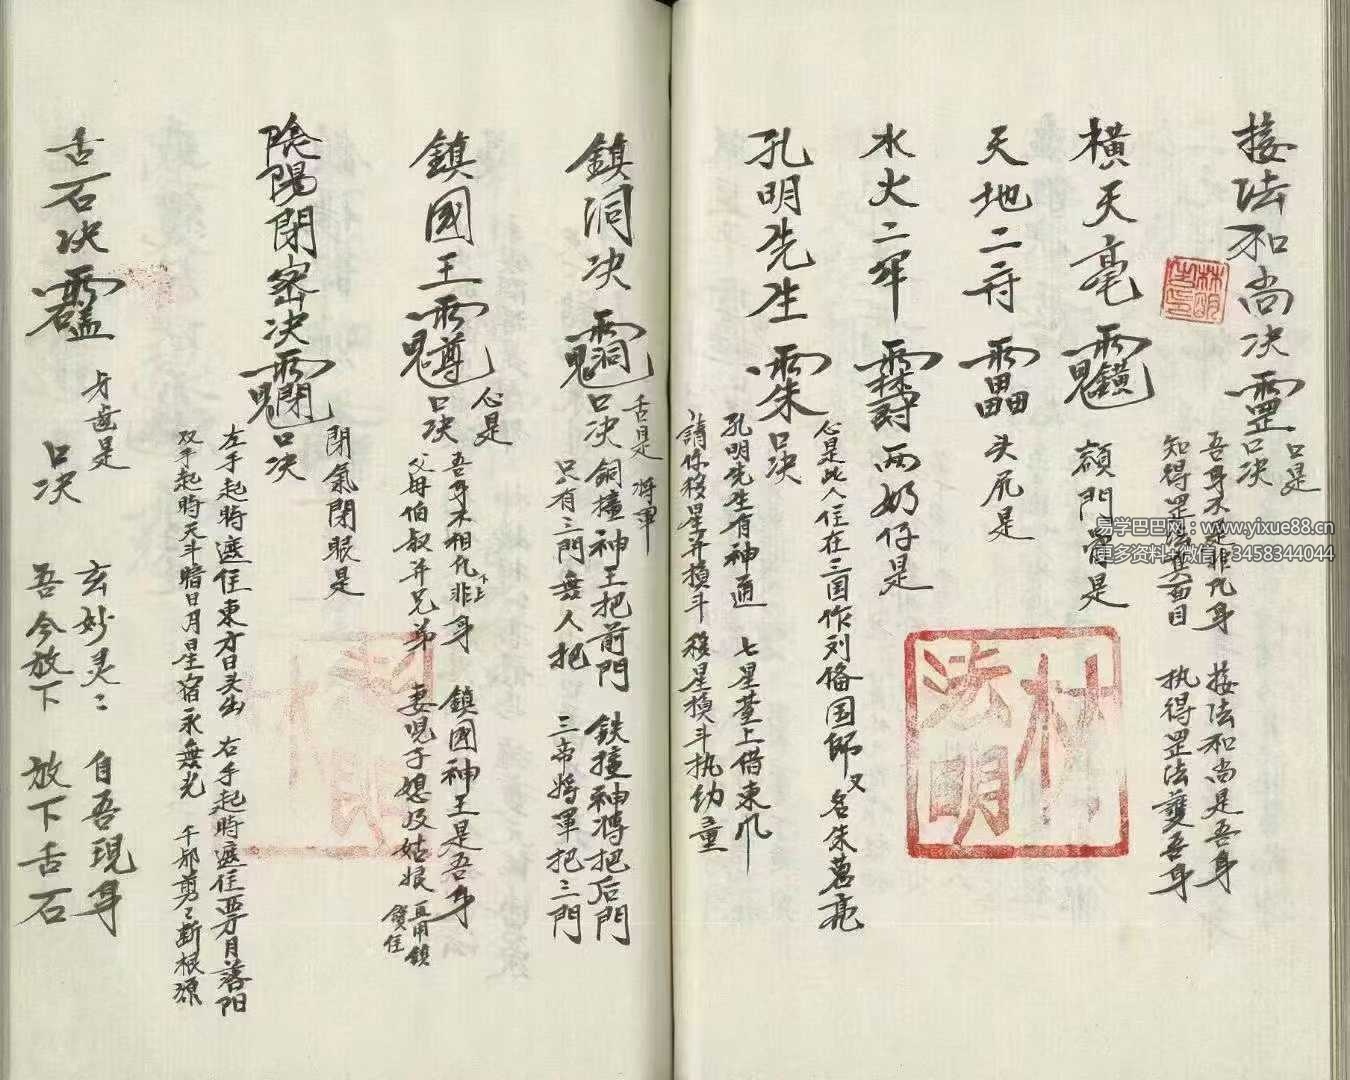 接法和尚决
口是
口决
吾身不是非凡身 接法和尚是吾身
知得罡法真面目 执得罡法护吾身
横天毫
额門骨是
天地二符
头尻是
水火二牢
两奶仔是
孔明先生
口决
心是此人住在三国作刘俻国师又名朱葛亮
孔明先生有神通 七星臺上借東風
請你移星并摘斗 移星摘斗执幼童
鎮洞决
舌是 将軍
口决
銅撞神王把前門 鉄撞神将把后門
只有三門無人把 三帝将軍把三門
鎮國王
心是
口决
吾身不相化非身 鎮國神王是吾身
不上
父母伯叔并兄弟 妻児子媳及姑娘
陰陽閉密决
閉氣閉眼是
口决
左手起時遮住東方日头出 右手起時遮住西方月落阳
双手起時天斗暗 日月星宿永無光 千郎剪剪断根源
舌石决
牙齒是
口决
玄妙灵灵 自吾現身
吾今放下 放下舌石
林法明
易学巴巴网：www.yixue88.cn
更多资料+微信：3458344044